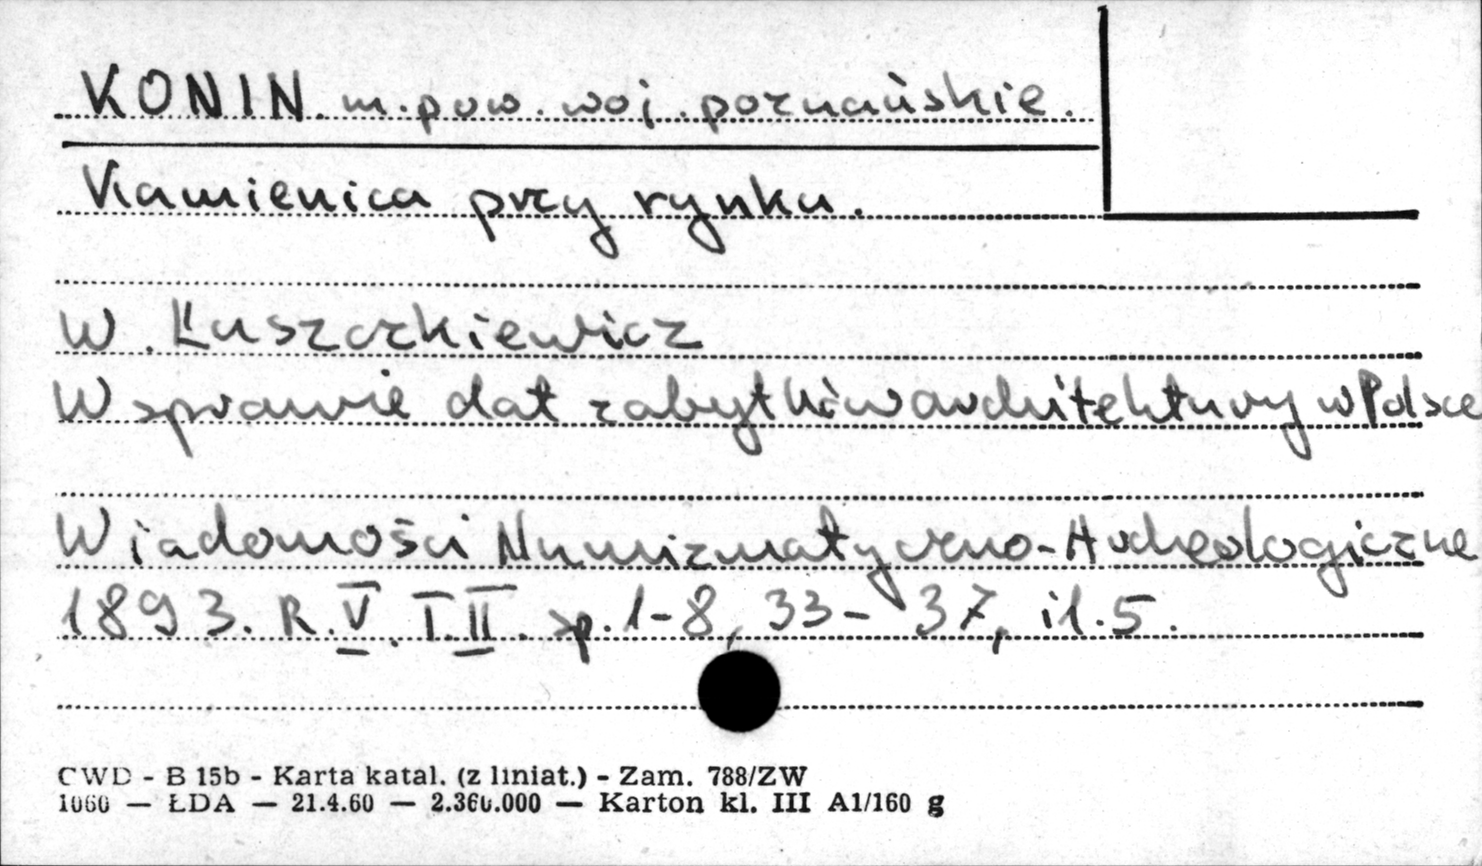 KONIN. m. pow. woj. poznańskie.
Kamienica przy rynku.
W. Łuszczkiewicz
W sprawie dat zabytków architektury w Polsce
Wiadomości Numizmatyczno-Archeologiczne
1893. R. V. T. II. sp. 1-8, 33-37, il. 5.
CWD - B 15b - Karta katal. (z liniat.) - Zam. 788/ZW
1060 — ŁDA — 21.4.60 — 2.360.000 — Karton kl. III A1/160 g